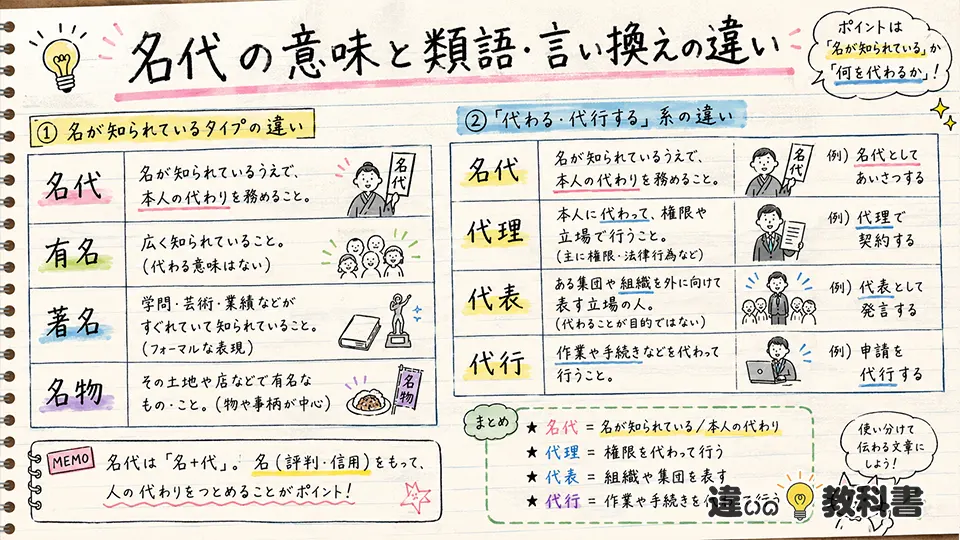 名代の意味と類語・言い換えの違い
ポイントは
「名が知られている」か
「何を代わるか」!
① 名が知られているタイプの違い
名代
名が知られているうえで、
本人の代わりを務めること。
名代
有名
広く知られていること。
(代わる意味はない)
著名
学問・芸術・業績などが
すぐれていて知られていること。
(フォーマルな表現)
名物
その土地や店などで有名な
もの・こと。(物や事柄が中心)
名物
MEMO
名代は「名+代」。名(評判・信用)をもって、
人の代わりをつとめることがポイント!
②「代わる・代行する」系の違い
名代
名が知られているうえで、
本人の代わりを務めること。
名代
例) 名代として
あいさつする
代理
本人に代わって、権限や
立場で行うこと。
(主に権限・法律行為など)
例) 代理で
契約する
代表
ある集団や組織を外に向けて
表す立場の人。
(代わることが目的ではない)
例) 代表として
発言する
代行
作業や手続きなどを代わって
行うこと。
例) 申請を
代行する
まとめ
★ 名代 = 名が知られている/本人の代わり
★ 代理 = 権限を代わって行う
★ 代表 = 組織や集団を表す
★ 代行 = 作業や手続きを代 て行う
使い分けて
伝わる文章に
しよう!
違いの教科書